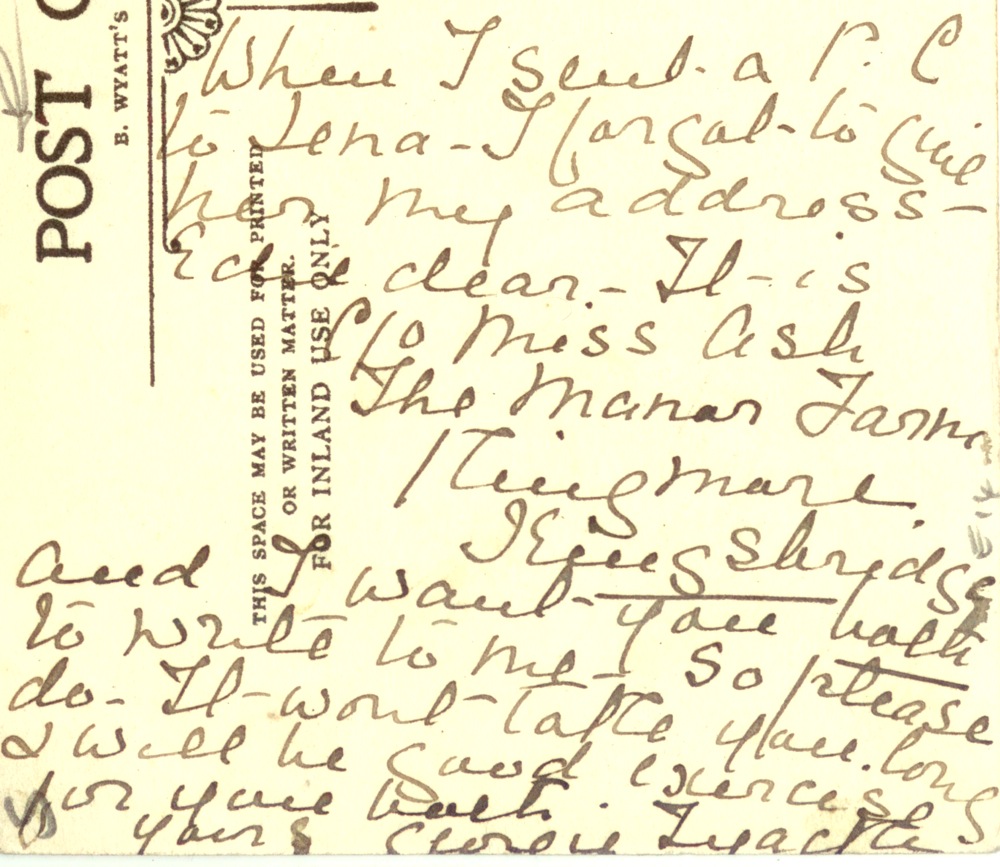 When I sent a P. C
to Lena - I forgot to give
her my address -
dear. - It is
C/o Miss Ash
The Manor Farm
Kingmore.
Kingsbridge
and I want you both
to write to me - so please
do - It wont take you long
& will be good exercise
for you both.
yours
POST C
E. WYATT'S
THIS SPACE MAY BE USED FOR PRINTED
OR WRITTEN MATTER.
FOR INLAND USE ONLY